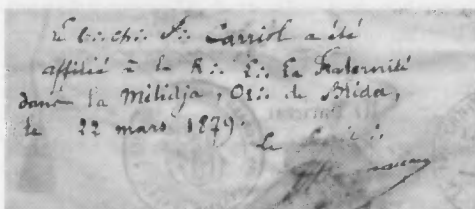 Le C∴ Ch∴ F∴ Carriol a été
affilié à la R∴ L∴ la Fraternité
dans la Mitidja, Or∴ de Blida,
le 22 mars 1879.
Le